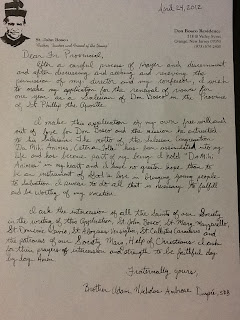 April 24, 2012
St. John Bosco
"Father, Teacher and Friend of the Young"
Don Bosco Residence
Orange, New Jersey 07050
Dear Fr. Provincial,
After a careful process of prayer and discernment
and after discussing and asking and receiving the
permission of my director and my confessor, I wish
to make my application for the renewal of vows for
one year as a Salesian of Don Bosco in the Province
of St. Philip the Apostle.
I make this application of my own free will and
out of love for Don Bosco and the mission he entrusted
to his Salesians. The motto of the Salesian Congregation
"Da Mihi Animas, Cetera Tolle" has been assimilated into my
life and has become part of my being. I hold "Da Mihi
Animas" in my heart and I find no greater love than to
be an instrument of God's love in bringing young people
to Salvation. I desire to do all that is necessary to fulfill
and be worthy of my vocation.
I ask the intercession of all the Saints of our Society
in the writing of this application, St. John Bosco, St. Mary Mazzarello,
St. Dominic Savio, St. Aloysius Versiglia, St. Callistus Caravario and
the patroness of our Society Mary, Help of Christians. I ask
for their prayers of intercession and strength to be faithful day
by day. Amen.
Fraternally yours,
Brother Adam Nicholas Ambrose Dupré, SDB